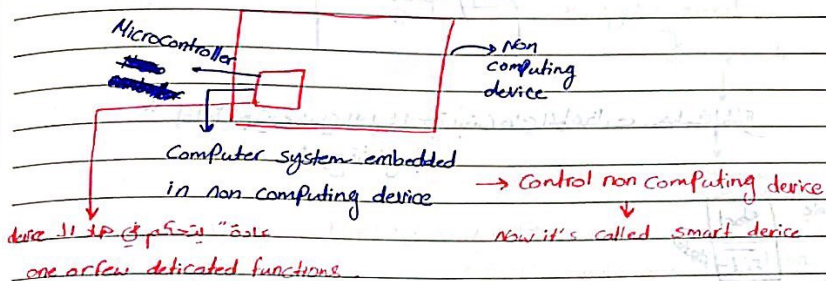 Microcontroller
Non
computing
device
Computer system embedded
in non computing device
→ Control non computing device
Now it's called smart device
عادة" بتحكم في هاد ال device
one or few deticated functions.